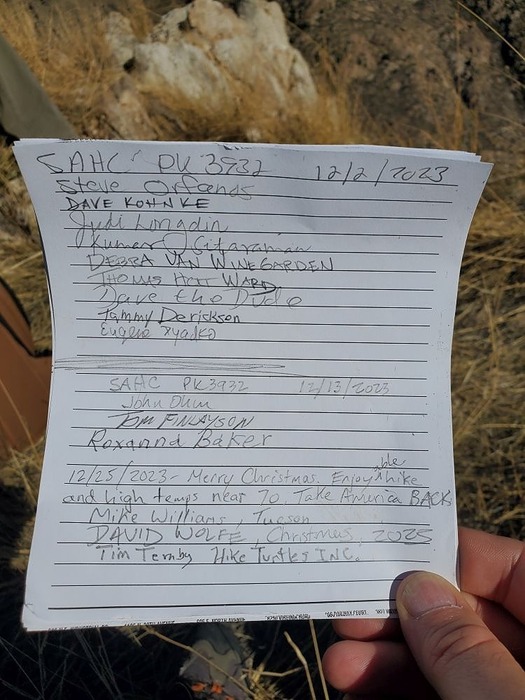 SAHC PK 3932 12/2/2023
Steve Orfanos
DAVE KOHNKE
Judi Longdin
Kumar Sitaraman
DEBRA VAN WINEGARDEN
THOMAS HOTT WARD
Dave the Dude
Tammy Derickson
Eugene
SAHC PK3932 12/13/2023
John Ohm
TOM FINLAYSON
Roxanna Baker
12/25/2023 - Merry Christmas. Enjoyable hike
and high temps near 70. Take America BACK
Mike Williams, Tucson
DAVID WOLFE, Christmas, 2025
Tim Ternby Hike Turtles INC.